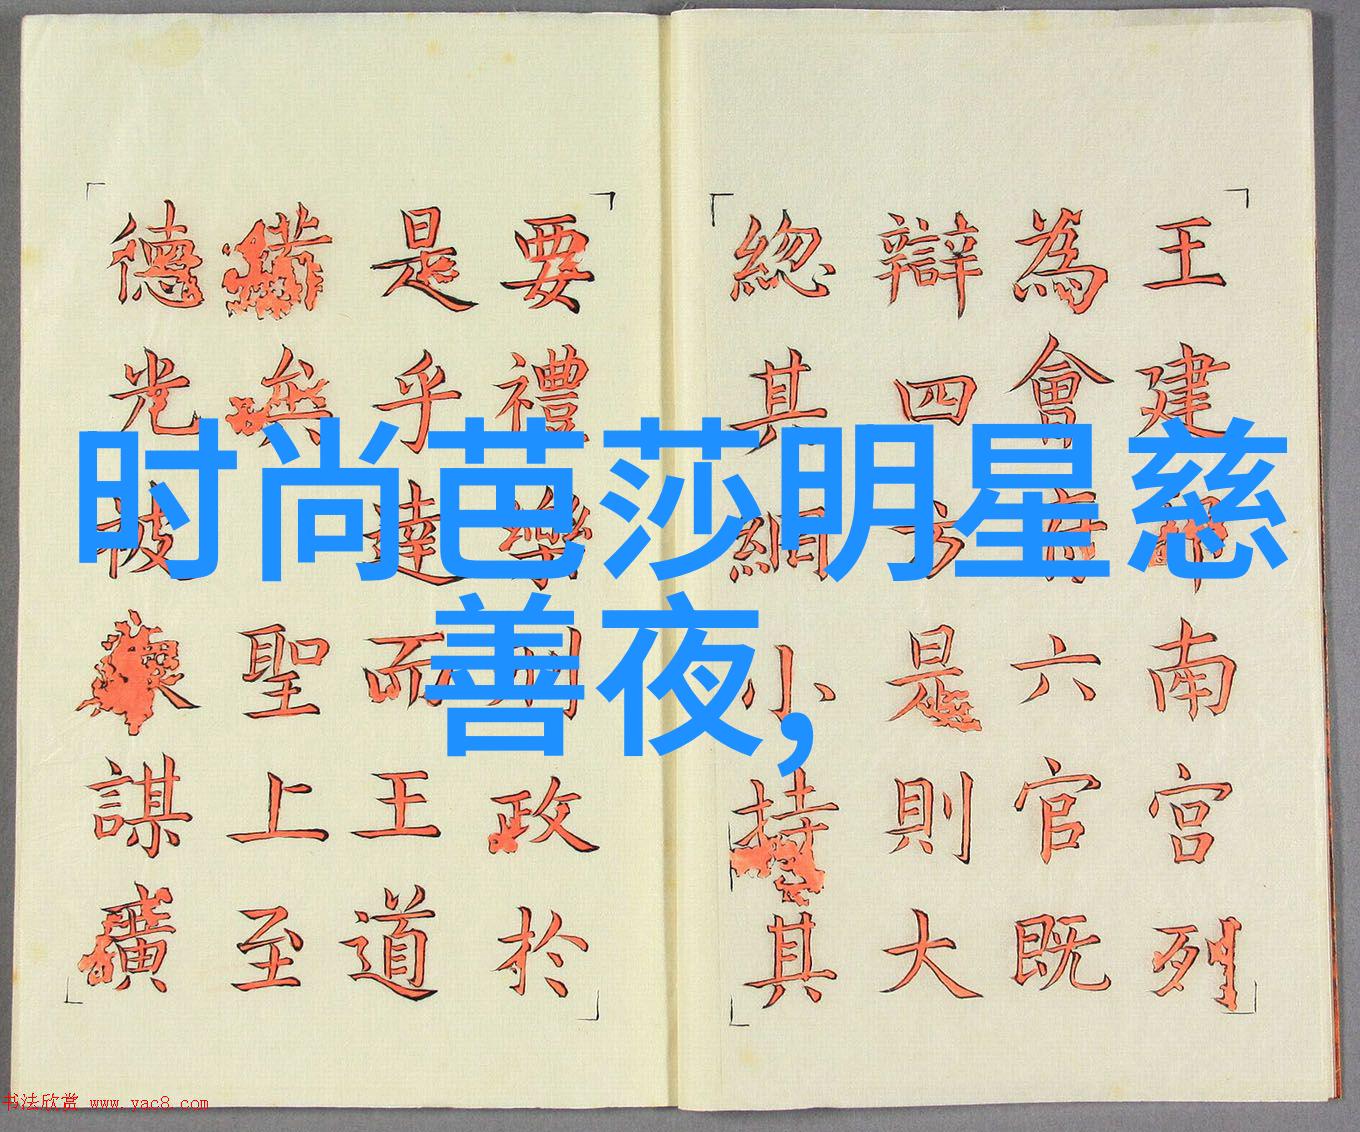 时尚芭莎明星慈
善夜,
王建南宮列
為會府六官既
辯四方是則大
緫其綱小持其
要禮樂刑政於
是乎達而王道
聖上至
德光被謀
书法欣赏 www.yac8.com